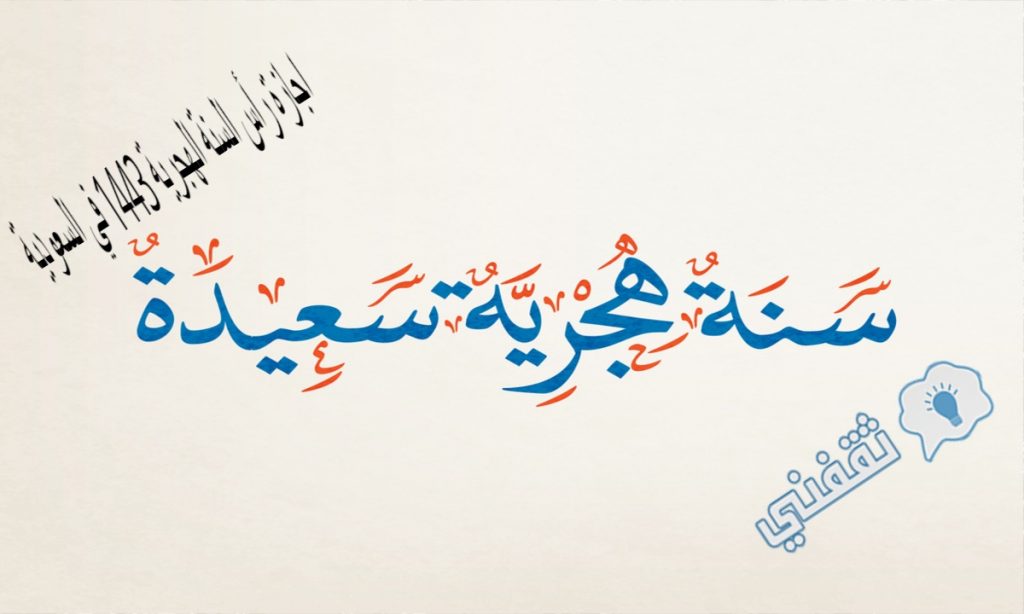 اجازة رأس السنة الهجرية 1443 في السعودية
سَنَةٌ هُجْرِيَّةٌ سَعِيدَةٌ
ثقفني